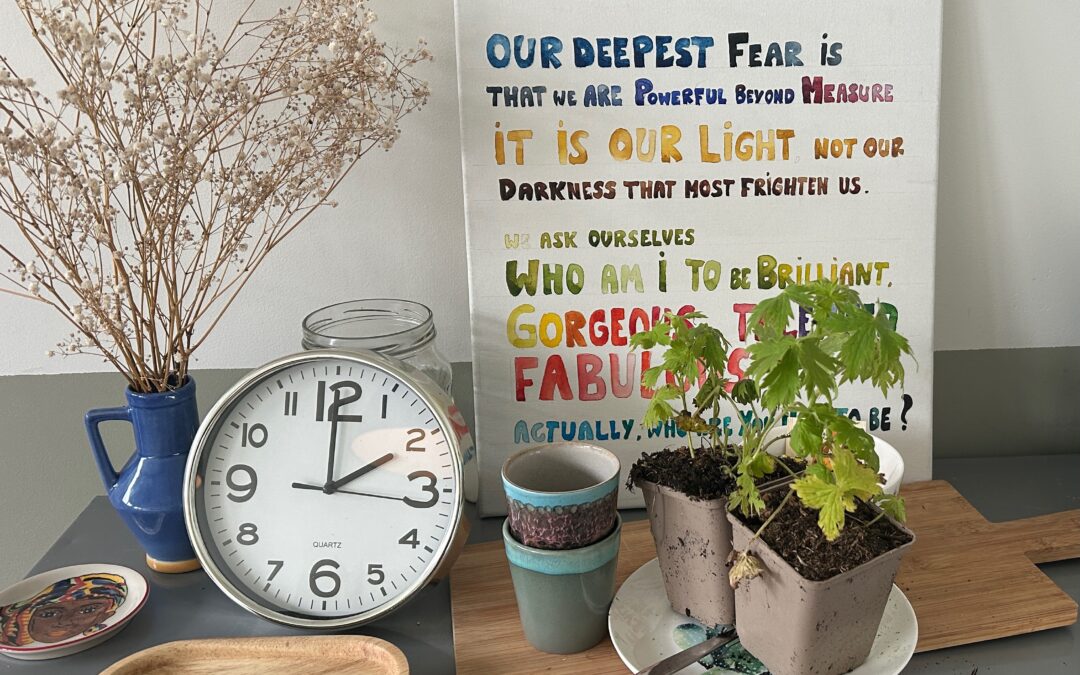 OUR DEEPEST FEAR iS
THAT WE ARE POWERFUL BEYOND MEASURE
iT iS OUR LiGHT, NOT OUR
DARKNESS THAT MOST FRiGHTEN US.
WE ASK OURSELVES
WHO AM i TO BE BRiLLiANT,
GORGEOUS,
FABULOUS
ACTUALLY, WHO ARE YOU TO BE?
11 12 1
10 2
9 3
8 4
QUARTZ
7 6 5